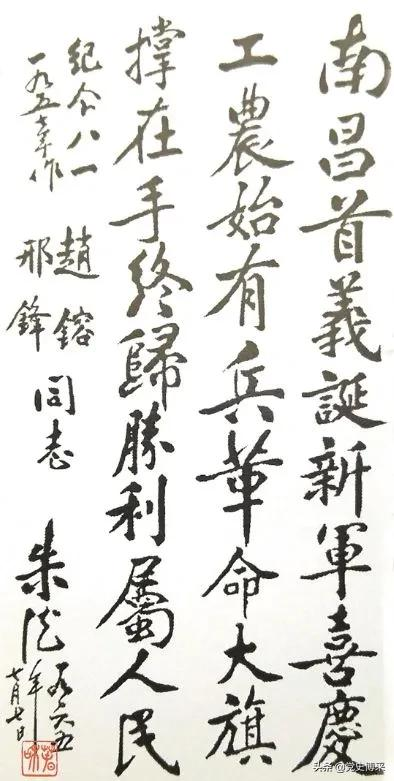 南昌首義誕新軍喜慶
工農始有兵革命大旗
撐在手終歸勝利屬人民
紀念八一
一九五七年作
趙鎔
邢鋒
同志
朱德
一九六五
年
七月七日
头条 @党史博采